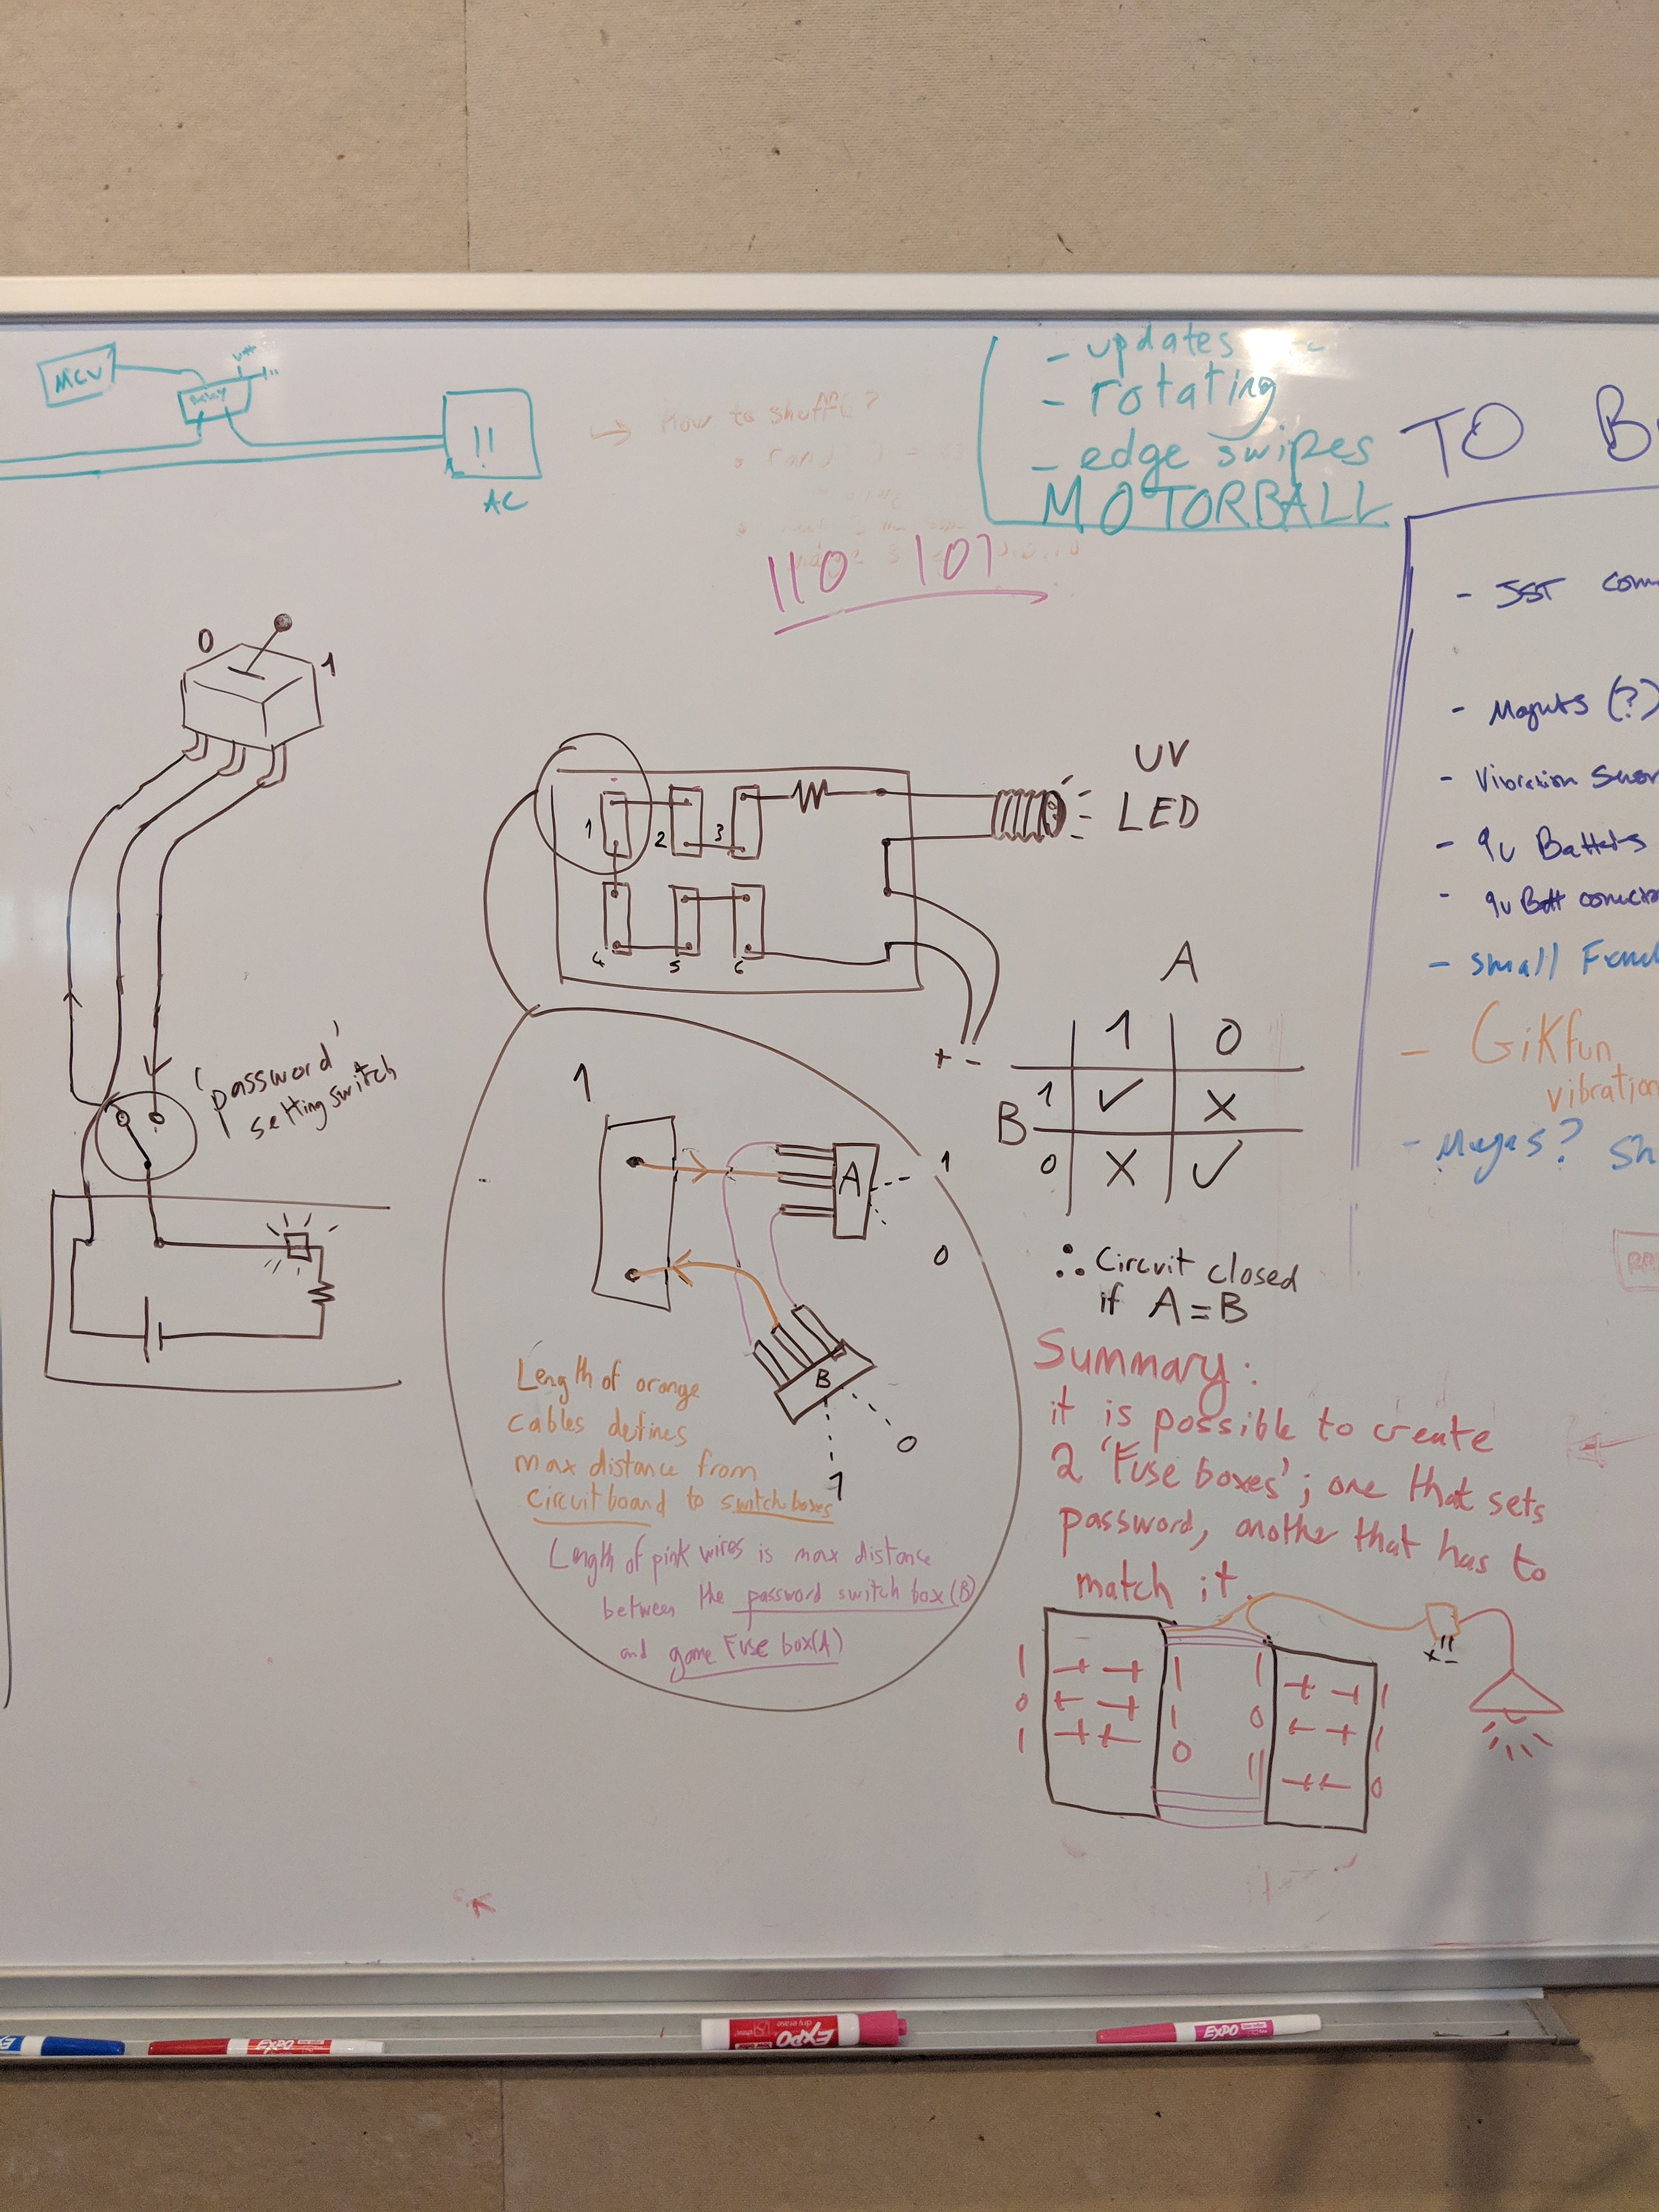 MCU
Relay
!!
AC
How to shuffle?
- updates
- rotating
- edge swipes
MOTORBALL
TO
110 101
- JST
- Magnets (?)
- Vibration
- 9v
- 9v Batt
- small
- Gikfun
vibration
0
1
'password'
setting switch
1
2
3
4
5
6
UV
LED
+ -
A
1 0
B
1 ✓ X
0 X ✓
∴ Circuit closed
if A=B
1
A
1
0
B
0
1
Length of orange
cables defines
max distance from
circuitboard to switch boxes
Length of pink wires is max distance
between the password switch box (B)
and game Fuse box (A)
Summary:
it is possible to create
2 'Fuse boxes'; one that sets
password, another that has to
match it.
1 1 1 1
0 1 0 1
1 0 1 0
EXPO
EXPO
dry erase
EXPO